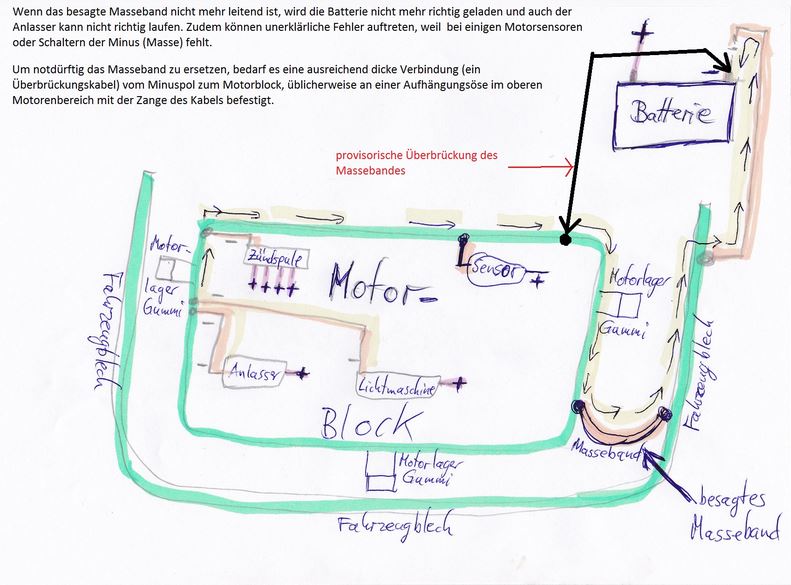 Wenn das besagte Masseband nicht mehr leitend ist, wird die Batterie nicht mehr richtig geladen und auch der
Anlasser kann nicht richtig laufen. Zudem können unerklärliche Fehler auftreten, weil bei einigen Motorsensoren
oder Schaltern der Minus (Masse) fehlt.
Um notdürftig das Masseband zu ersetzen, bedarf es eine ausreichend dicke Verbindung (ein
Überbrückungskabel) vom Minuspol zum Motorblock, üblicherweise an einer Aufhängungsöse im oberen
Motorenbereich mit der Zange des Kabels befestigt.
+
−
Batterie
provisorische Überbrückung des
Massebandes
Motor-
lager
Gummi
Zündspule
++++
Motor-
Sensor
+
Motorlager
Gummi
Fahrzeugblech
Fahrzeugblech
Anlasser
+
Lichtmaschine
+
Block
Masseband
Motorlager
Gummi
besagtes
Masseband
Fahrzeugblech